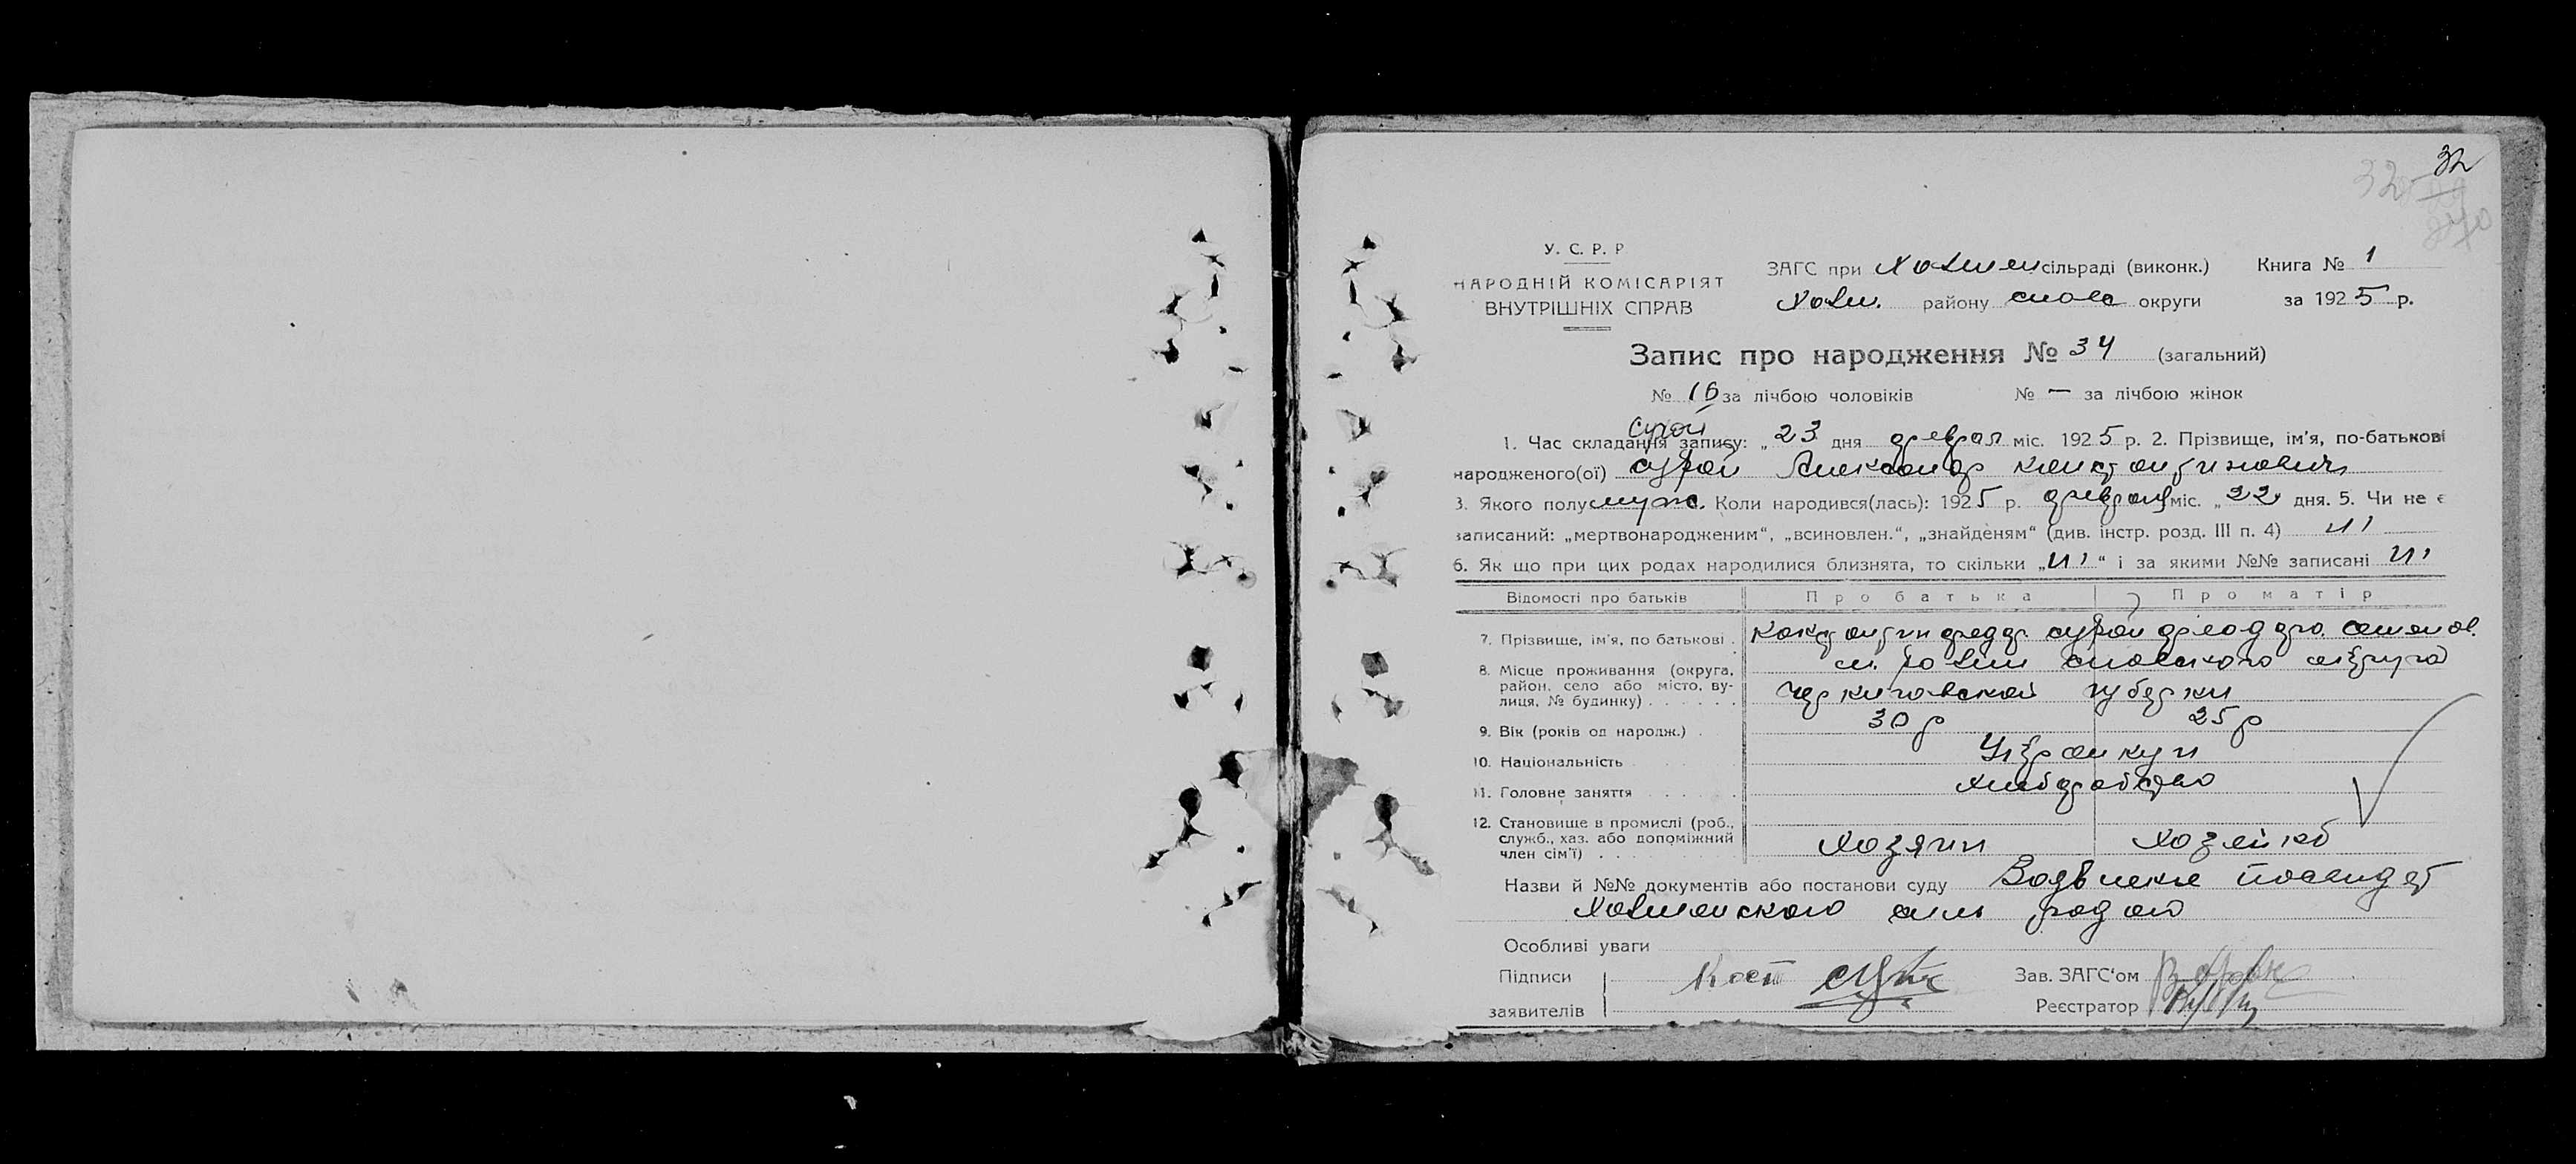 32
32
У. С. Р. Р
НАРОДНІЙ КОМІСАРІЯТ
ВНУТРІШНІХ СПРАВ
ЗАГС при Холмен сільраді (виконк.) Книга № 1
Холм. району снове округи за 1925 р.
Запис про народження № 34 (загальний)
№ 16 за лічбою чоловіків № — за лічбою жінок
Сухой
1. Час складання запису: „23 дня феврал міс. 1925 р. 2. Прізвище, ім'я, по-батькові
народженого(ої) сухой Александр константинович
3. Якого полу муж. Коли народився(лась): 1925 р. февраля міс. „22 дня. 5. Чи не є
записаний: „мертвонародженим“, „всиновлен.“, „знайденям“ (див. інстр. розд. III п. 4) ні
6. Як що при цих родах народилися близнята, то скільки „ні“ і за якими №№ записані ні
Відомості про батьків Про батька Про матір
7. Прізвище, ім'я, по батькові . Константин федор. сухой семенов.
8. Місце проживання (округа, район, село або місто, вулиця, № будинку) . . . . . . м. холми сновского округа
черниговской губерни
9. Вік (років од народж.) . 30 р 25 р
10. Національність Украинци
11. Головне заняття . . . . . . хлиборобство
12. Становище в промислі (роб., служб., хаз. або допоміжний член сім'ї) . . . . . . . . . Хозяин Хозяйка
Назви й №№ документів або постанови суду
Холменского силь радою
Особливі уваги
Підписи заявителів Кост Сухой
Зав. ЗАГС'ом
Реєстратор